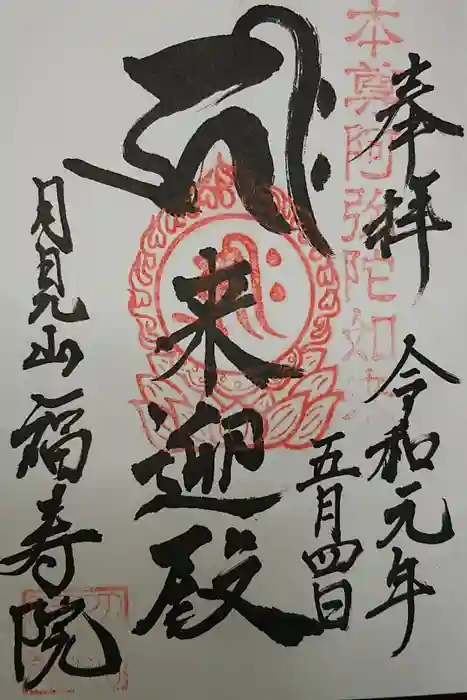 奉拝
令和元年
五月四日
本尊阿弥陀如来
𑖮𑖿𑖨𑖱𑖾
来迎殿
月見山福寿院